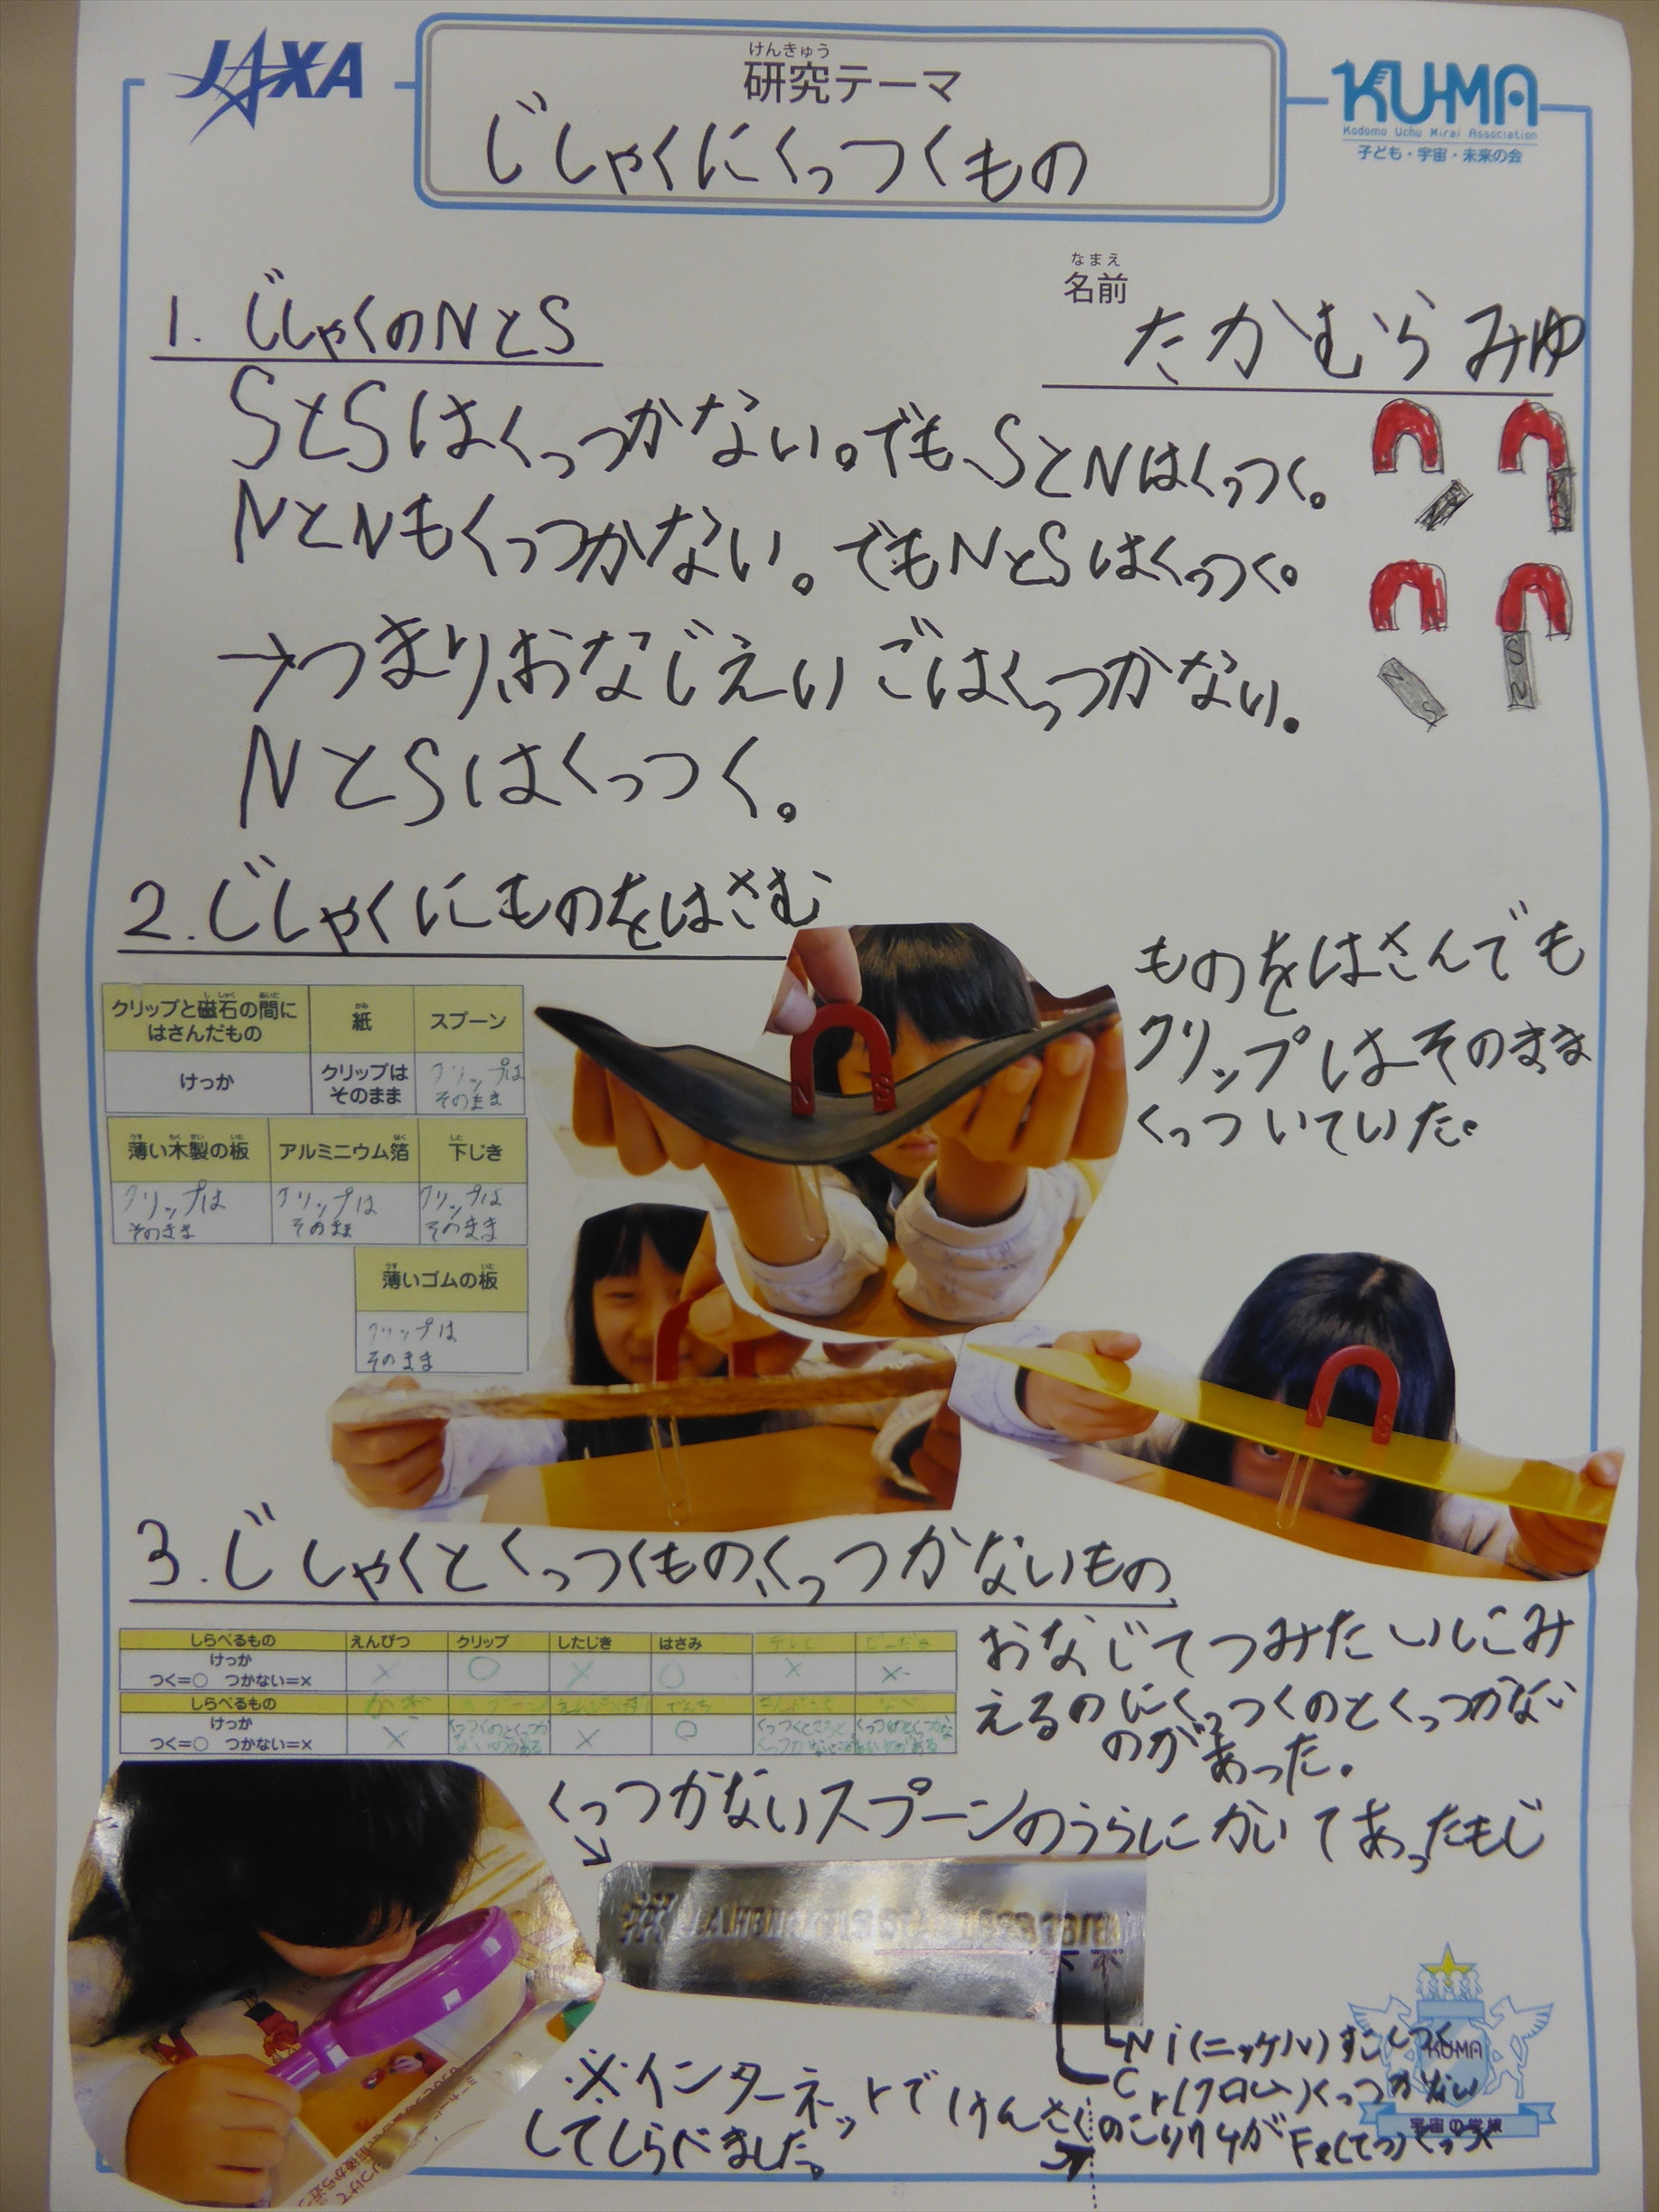 JAXA
けんきゅう
研究テーマ
じしゃくにくっつくもの
KU-MA
Kodomo Uchu Mirai Association
子ども・宇宙・未来の会
なまえ
名前
たかむら みゆ
1. じしゃくのNとS
SとSはくっつかない。でも、SとNはくっつく。
NとNもくっつかない。でもNとSはくっつく。
→つまり、おなじえいごはくっつかない。
NとSはくっつく。
S
N
N
S
2.じしゃくにものをはさむ
ものをはさんでも
クリップはそのまま
くっついていた。
クリップと磁石の間に
はさんだもの
紙
スプーン
けっか
クリップは
そのまま
クリップは
そのまま
薄い木製の板
アルミニウム箔
下じき
クリップは
そのまま
クリップは
そのまま
クリップは
そのまま
薄いゴムの板
クリップは
そのまま
N S
N S
3.じしゃくとくっつくもの、くっつかないもの
しらべるもの えんぴつ クリップ したじき はさみ
けっか
つく=○ つかない=×
× ○ × ○ × ×
しらべるもの かぎ スプーン でんち
けっか
つく=○ つかない=×
× くっつくのとくっつかないのがある × ○
おなじてつみたいにみ
えるのにくっつくのとくっつかない
のがあった。
くっつかないスプーンのうらにかいてあったもじ
Ni(ニッケル)すこしつく
Cr(クロム)くっつかない
のこりだけがFe(てつ)
※インターネットでけんさく
してしらべました。
KU-MA
宇宙の学校